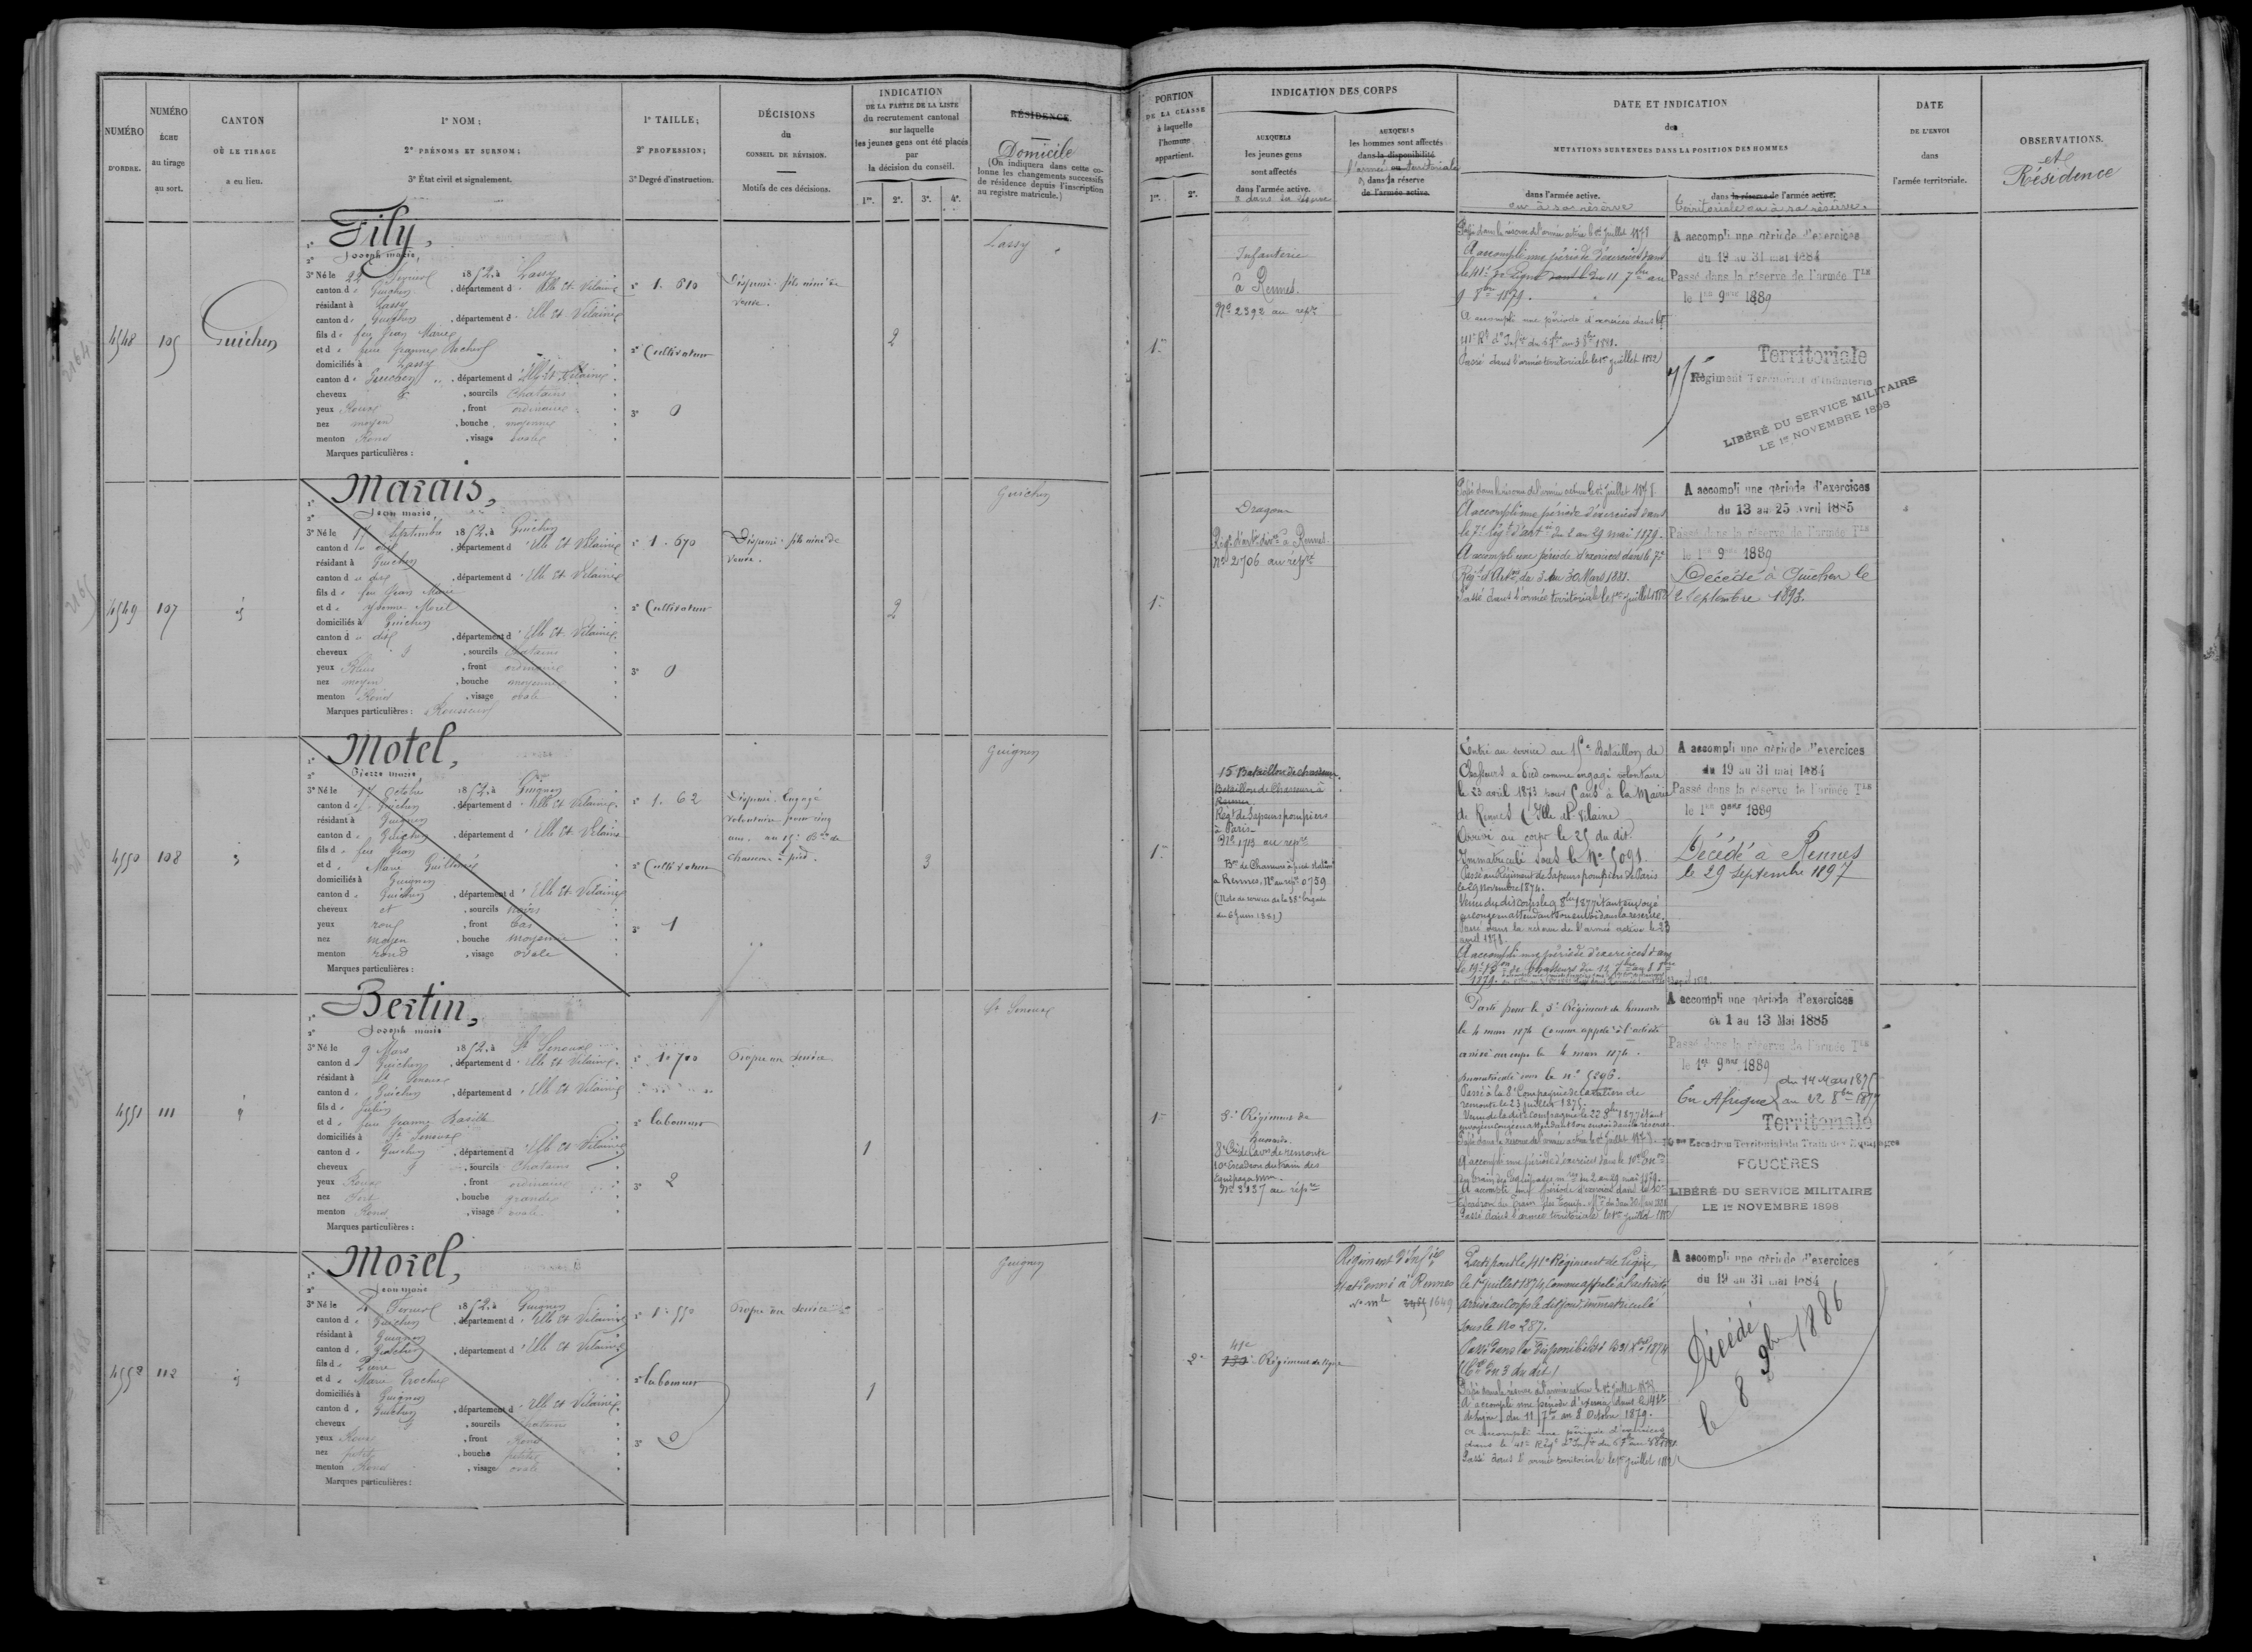 NUMÉRO D'ORDRE.
NUMÉRO ÉCHU au tirage au sort.
CANTON OÙ LE TIRAGE a eu lieu.
1° NOM;
2° PRÉNOMS ET SURNOM;
3° État civil et signalement.
1° TAILLE;
2° PROFESSION;
3° Degré d'instruction.
DÉCISIONS du CONSEIL DE RÉVISION.
Motifs de ces décisions.
INDICATION
DE LA PARTIE DE LA LISTE
du recrutement cantonal
sur laquelle
les jeunes gens ont été placés
par
la décision du conseil.
1re. 2e. 3e. 4e.
RÉSIDENCE.
Domicile
(On indiquera dans cette co-
lonne les changements successifs
de résidence depuis l'inscription
au registre matricule.)
PORTION
DE LA CLASSE
à laquelle
l'homme
appartient.
1re. 2e.
INDICATION DES CORPS
AUXQUELS
les jeunes gens
sont affectés
dans l'armée active.
AUXQUELS
les hommes sont affectés
dans la disponibilité
l'armée territoriale
dans la réserve
de l'armée active.
DATE ET INDICATION
des
MUTATIONS SURVENUES DANS LA POSITION DES HOMMES
dans l'armée active.
ou à sa réserve
dans la réserve de l'armée active.
territoriale ou à sa réserve.
DATE
DE L'ENVOI
dans
l'armée territoriale.
OBSERVATIONS.
et
Résidence
4548
105
Guichen
Fily,
Joseph marie,
3° Né le 22 1852, à Lassy
canton de Guichen, département d'Ille et Vilaine
résidant à Lassy
canton de Guichen, département d'Ille et Vilaine
fils de feu Jean Marie
et de feue Jeanne
domiciliés à Lassy
canton de Guichen, département d'Ille et Vilaine
cheveux et, sourcils Chatains
yeux Roux, front ordinaire
nez moyen, bouche moyenne
menton Rond, visage ovale
Marques particulières :
1° 1.610
2° Cultivateur
3° 0
Dispensé fils aîné de
veuve.
2
Lassy
1re
Infanterie
à Rennes.
No 2392 au répre
Passé dans la réserve de l'armée active le 1er Juillet 1878
A accompli une période d'exercices dans
le 41e de ligne du 11 7bre au
8 8bre 1879.
A accompli une période d'exercices dans le
Passé dans l'armée territoriale le 1er juillet 1882
A accompli une période d'exercices
du 19 au 31 mai 1884
Passé dans la réserve de l'armée Tle
le 1er 9bre 1889
Territoriale
75 Régiment Territorial d'Infanterie
LIBÉRÉ DU SERVICE MILITAIRE
LE 1er NOVEMBRE 1898
4549
107
id
Marais,
Jean marie,
3° Né le 17 Septembre 1852, à Guichen
canton d, département d'Ille et Vilaine
résidant à Guichen
canton d, département d'Ille et Vilaine
fils de feu Jean Marie
et de Yvonne Morel
domiciliés à Guichen
canton d, département d'Ille et Vilaine
cheveux, sourcils Chatains
yeux Bleus, front ordinaire
nez moyen, bouche moyenne
menton Rond, visage ovale
Marques particulières : Rousseurs
1° 1.670
2° Cultivateur
3° 0
Dispensé fils aîné de
veuve.
2
Guichen
1re
Dragons
No 2706 au répre
Passé dans la réserve de l'armée active le 1er Juillet 1878
A accompli une période d'exercices dans
le 7e Régt d'artie du 2 au 29 mai 1879.
A accompli une période d'exercices dans le 7e
Régt d'Artie du 3 au 30 Mars 1881.
Passé dans l'armée territoriale le 1er juillet 1882
A accompli une période d'exercices
du 13 au 25 avril 1885
Passé dans la réserve de l'armée Tle
le 1er 9bre 1889
Décédé à Guichen le
2 Septembre 1893.
4550
108
id
Motel,
Pierre marie
3° Né le 17 Octobre 1852, à Guignen
canton de Guichen, département d'Ille et Vilaine
résidant à Guignen
canton de Guichen, département d'Ille et Vilaine
fils de feu Jean
et de Marie
domiciliés à Guignen
canton de Guichen, département d'Ille et Vilaine
cheveux et, sourcils noirs
yeux roux, front bas
nez moyen, bouche moyenne
menton rond, visage ovale
Marques particulières :
1° 1.62
2° Cultivateur
3° 1
Dispensé. Engagé
volontaire pour cinq
ans au 15e Bon de
chasseurs à pied.
3
Guignen
1re
15 Bataillon de chasseurs
Bataillon de Chasseurs à
Rennes
Régt de Sapeurs pompiers
à Paris
No 1713 au répre
Bon de Chasseurs à pied stationné
à Rennes, No au répre 0759
du 6 juin 1881)
Entré au service au 15e Bataillon de
Chasseurs à pied comme engagé volontaire
le 23 avril 1873 pour 5 ans à la Mairie
de Rennes (Ille et Vilaine)
Arrivé au corps le 25 du dit.
Immatriculé sous le No 5091.
Passé au Régiment de Sapeurs pompiers de Paris
le 29 novembre 1874.
Venu du dit corps le 9 8bre 1877 étant envoyé
en congé en attendant son envoi dans la réserve.
Passé dans la réserve de l'armée active le 23
avril 1878.
A accompli une période d'exercices dans
1879.
A accompli une période d'exercices
du 19 au 31 mai 1884
Passé dans la réserve de l'armée Tle
le 1er 9bre 1889
Décédé à Rennes
le 29 Septembre 1897
4551
111
id
Bertin,
Joseph marie
3° Né le 9 Mars 1852, à St Senoux
canton de Guichen, département d'Ille et Vilaine
résidant à St Senoux
canton de Guichen, département d'Ille et Vilaine
fils de Julien
et de feue Jeanne
domiciliés à St Senoux
canton de Guichen, département d'Ille et Vilaine
cheveux, sourcils Chatains
yeux Roux, front ordinaire
nez fort, bouche grande
menton Rond, visage ovale
Marques particulières :
1° 1.700
2° laboureur
3° 2
Propre au service
1
St Senoux
1re
3e Régiment de
hussards.
8e Cie de Cavrs de remonte
10e Escadron du train des
Équipages
No 3137 au répre
Parti pour le 3e Régiment de hussards
le 4 mars 1874 comme appelé à l'activité
arrivé au corps le 4 mars 1874.
Immatriculé sous le no 5296.
Passé à la 8e Compagnie de Cavaliers de
remonte le 23 juillet 1875.
Venu de la dite compagnie le 22 8bre 1877 étant
envoyé en congé en attendant son envoi dans la réserve.
Passé dans la réserve de l'armée active le 1er Juillet 1878.
A accompli une période d'exercices dans le 10e
du train des Équipages du 2 au 29 mai 1879.
A accompli une période d'exercices dans le 10e
Passé dans l'armée territoriale le 1er juillet 1882
A accompli une période d'exercices
de 1 au 13 Mai 1885
Passé dans la réserve de l'armée Tle
le 1er 9bre 1889
En Afrique du 14 Mars 1875
au 22 8bre 1877
Territoriale
Escadron Territorial du Train des Équipages
FOUGÈRES
LIBÉRÉ DU SERVICE MILITAIRE
LE 1er NOVEMBRE 1898
4552
112
id
Morel,
Jean marie
3° Né le 1852, à Guignen
canton de Guichen, département d'Ille et Vilaine
résidant à Guignen
canton de Guichen, département d'Ille et Vilaine
fils de Pierre
et de Marie
domiciliés à Guignen
canton de Guichen, département d'Ille et Vilaine
cheveux, sourcils Chatains
yeux Roux, front Rond
nez petit, bouche petite
menton Rond, visage ovale
Marques particulières :
1° 1.550
2° laboureur
3° 0
Propre au service
1
Guignen
2e
41e
Régiment de ligne
Régiment d'Infie
stationné à Rennes
1649
Parti pour le 41e Régiment de ligne
le 1er juillet 1874 comme appelé à l'activité
arrivé au corps le dit jour, immatriculé
sous le No 287.
Passé dans la disponibilité le 31 Xbre 1874
Passé dans la réserve de l'armée active le 1er Juillet 1878
A accompli une période d'exercices dans le 41e
de ligne du 11 7bre au 8 Octobre 1879.
A accompli une période d'exercices
Passé dans l'armée territoriale le 1er juillet 1882
A accompli une période d'exercices
du 19 au 31 mai 1884
Décédé
le 8 9bre 1886